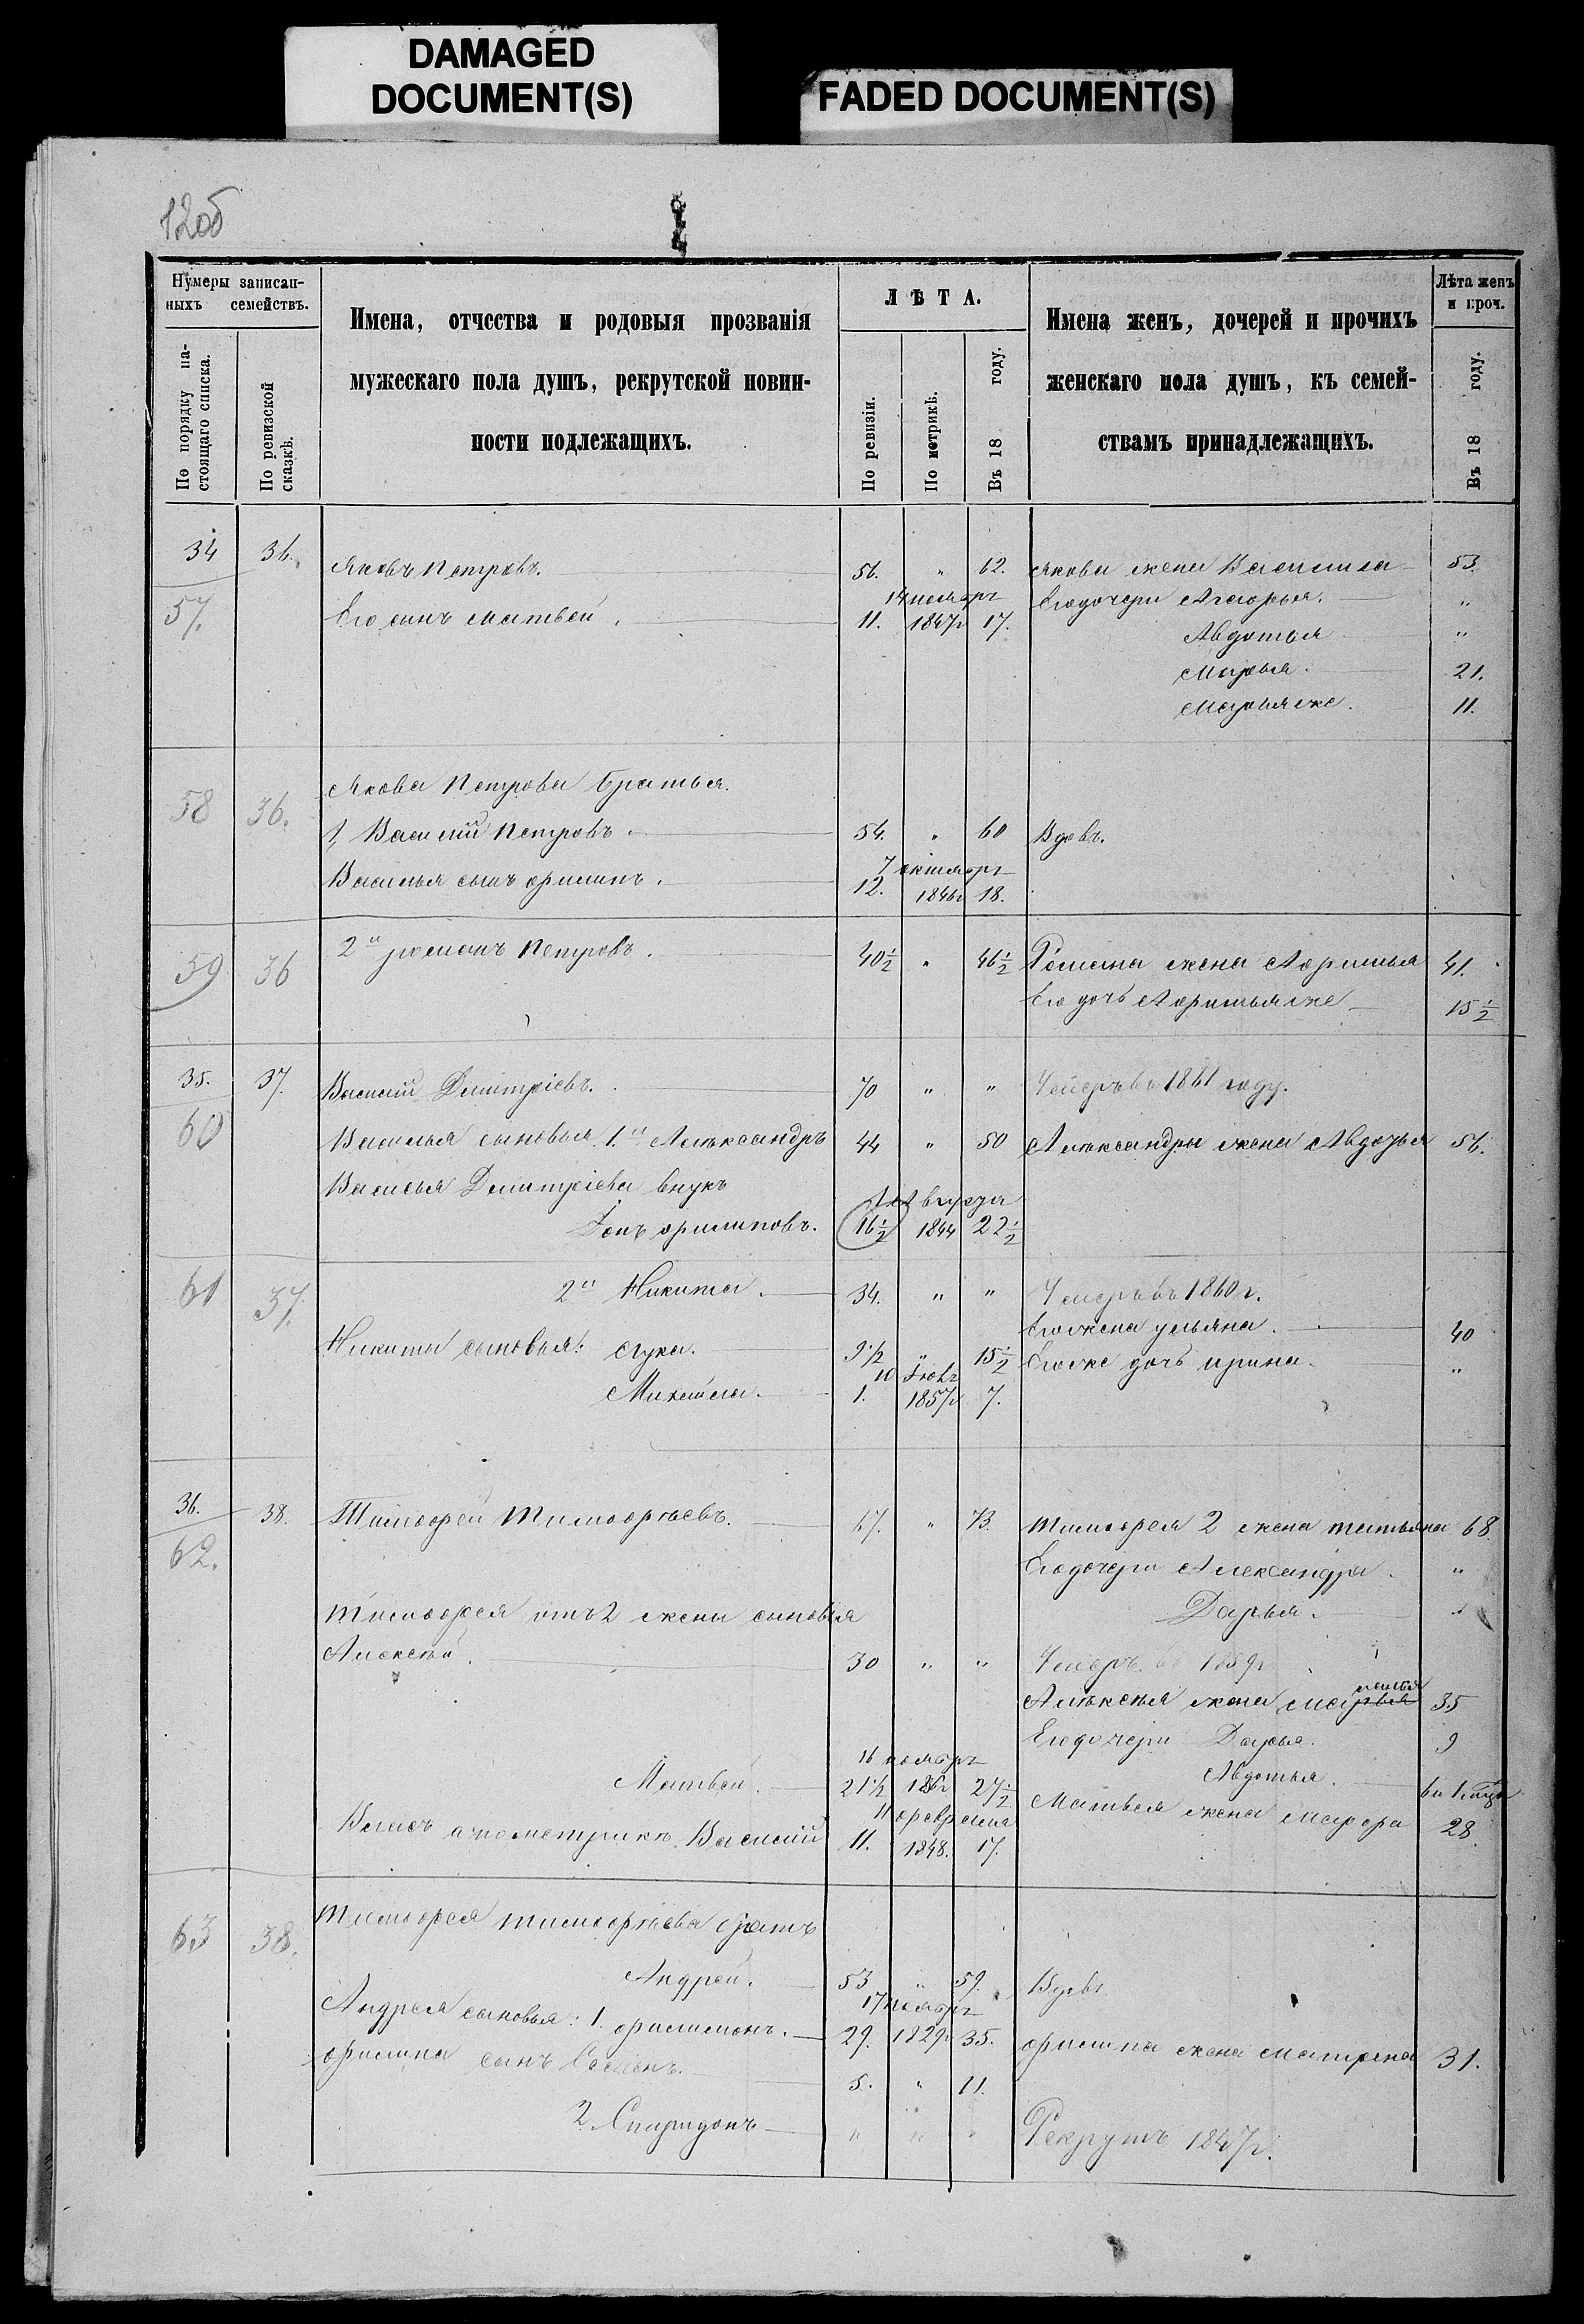 DAMAGED
DOCUMENT(S)
FADED DOCUMENT(S)
12об
Нумеры записан-
ныхъ семействъ.
По порядку на-
стоящаго списка.
По ревизской
сказкѣ.
Имена, отчества и родовыя прозванія
мужескаго пола душъ, рекрутской повин-
ности подлежащихъ.
ЛѢТА.
По ревизіи.
По метрикѣ.
Въ 18 году.
Имена женъ, дочерей и прочихъ
женскаго пола душъ, къ семей-
ствамъ принадлежащихъ.
Лѣта женъ
и проч.
Въ 18 году.
34 36. Яковъ Петровъ. 56. " 62. Якова жена Василиса 53.
57. Его сынъ Матвей. 11. 14 ноябр 1847г 17. Его дочери "
Авдотья "
Марья. 21.
Марья же. 11.
58 36. Якова Петрова братья.
1, Василий Петровъ. 54. " 60 Вдовъ.
Василья сынъ Филипъ. 12. 7 октябр 1846г 18.
59 36 2й Романъ Петровъ. 40½ " 46½ Романа жена Афимья 41.
Его дочь Афимья же 15½
35. 37. Василий Дмитріевъ. 70 " " Умеръ въ 1861 году.
60 Василья сыновья 1й Алѣксандръ 44 " 50 Алѣксандры жена Авдотья 56.
Василья Дмитріева внукъ
Филиповъ. 16½ 1844 22½
61 37. 2й Никита. 34. " " Умеръ въ 1860г.
Его жена Ульяна. 40
Никиты сыновья: Лука. 9½ " 15½ Его же дочь Ирина. "
Михайла. 1. 10 1857г 7.
36. 38. Тимофей Тимофѣевъ. 67. " 73. Тимофея 2 жена Татьяна 68.
62. Его дочери Александра. "
Тимофея отъ 2 жены сыновья Дарья. "
Алексѣй. 30 " " Умеръ въ 1859г
Алѣксѣя жена 35
Его дочери Дарья. 9
Авдотья.
Матвей. 21½ 16 ноябр 27½ Матвея жена 28.
Власъ а по метрикѣ Василий 11. 11 февраля 1848. 17.
63 38. Тимофея Тимофѣева братъ
Андрей. 53 " 59. Вдовъ
Андрея сыновья: 1. Филимонъ. 29. 17 ноябр 1829г 35. Филипа жена Матрена 31.
Филипа сынъ Семенъ. 5. " 11.
2. Спиридонъ " " " Рекрутъ 1847г.